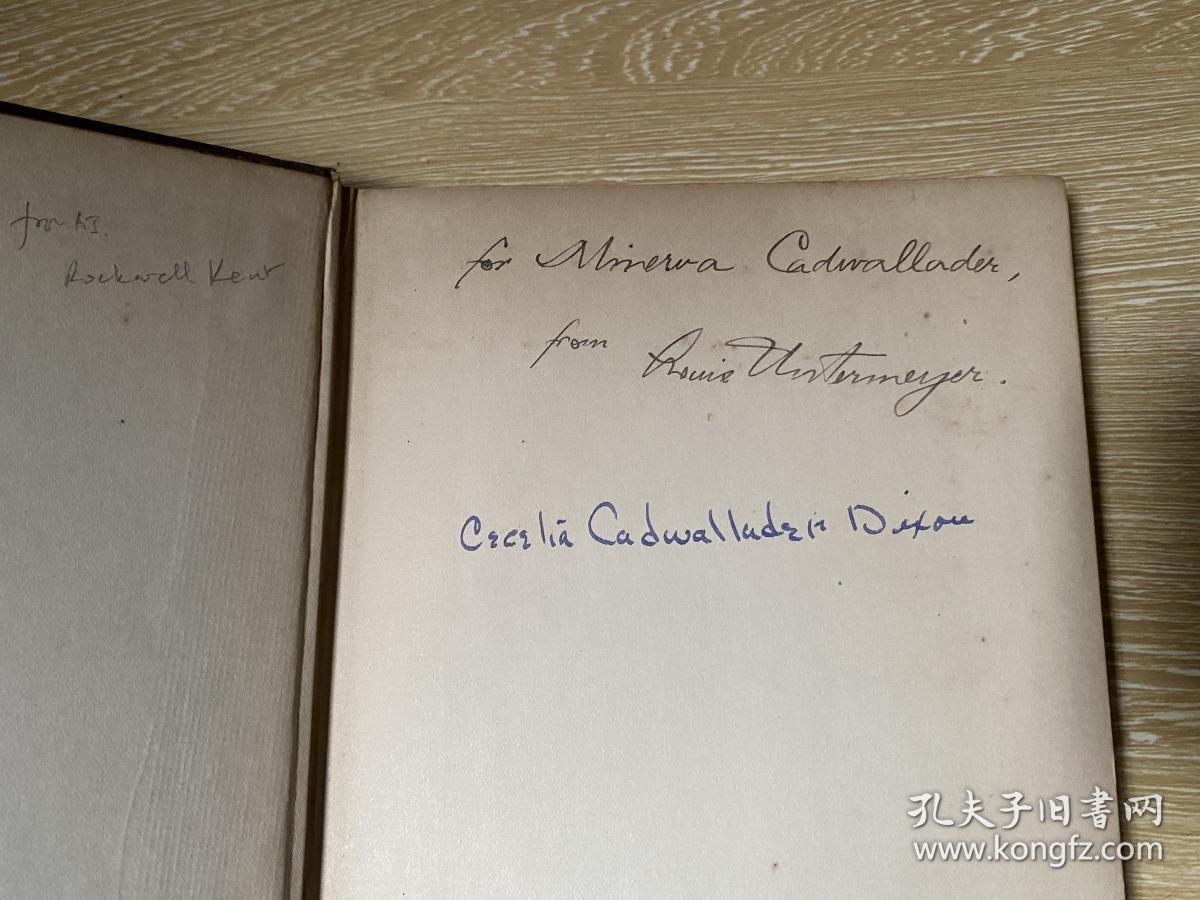 Rockwell Kent
for Minerva Cadwallader,
from Louis Untermeyer.
Cecelia Cadwallader Dixon
孔夫子旧书网
www.kongfz.com